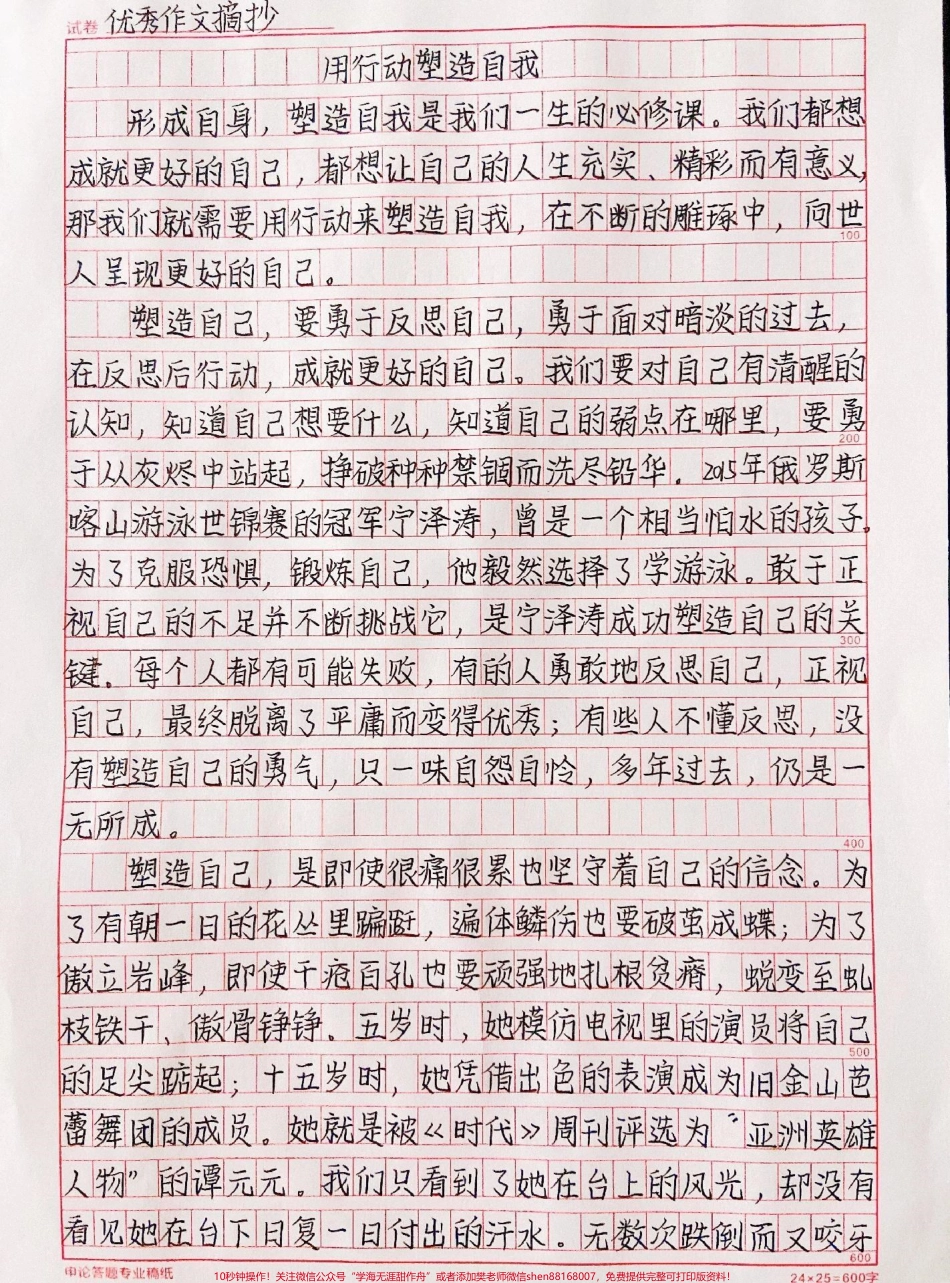 试卷 优秀作文摘抄
用行动塑造自我
形成自身，塑造自我是我们一生的必修课。我们都想
成就更好的自己，都想让自己的人生充实、精彩而有意义，
那我们就需要用行动来塑造自我，在不断的雕琢中，向世
100
人呈现更好的自己。
塑造自己，要勇于反思自己，勇于面对暗淡的过去，
在反思后行动，成就更好的自己。我们要对自己有清醒的
认知，知道自己想要什么，知道自己的弱点在哪里，要勇
200
于从灰烬中站起，挣破种种禁锢而洗尽铅华。2015年俄罗斯
喀山游泳世锦赛的冠军宁泽涛，曾是一个相当怕水的孩子。
为了克服恐惧，锻炼自己，他毅然选择了学游泳。敢于正
视自己的不足并不断挑战它，是宁泽涛成功塑造自己的关
300
键。每个人都有可能失败，有的人勇敢地反思自己，正视
自己，最终脱离了平庸而变得优秀；有些人不懂反思，没
有塑造自己的勇气，只一味自怨自怜，多年过去，仍是一
无所成。
400
塑造自己，是即使很痛很累也坚守着自己的信念。为
了有朝一日的花丛里蹁跹，遍体鳞伤也要破茧成蝶；为了
傲立岩峰，即使千疮百孔也要顽强地扎根贫瘠，蜕变至虬
枝铁干、傲骨铮铮。五岁时，她模仿电视里的演员将自己
500
的足尖踮起；十五岁时，她凭借出色的表演成为旧金山芭
蕾舞团的成员。她就是被《时代》周刊评选为“亚洲英雄
人物”的谭元元。我们只看到了她在台上的风光，却没有
看见她在台下日复一日付出的汗水。无数次跌倒而又咬牙
600
申论答题专业稿纸 24×25=600字
10秒钟操作！关注微信公众号“学海无涯甜作舟”或者添加樊老师微信shen88168007，免费提供完整可打印版资料！